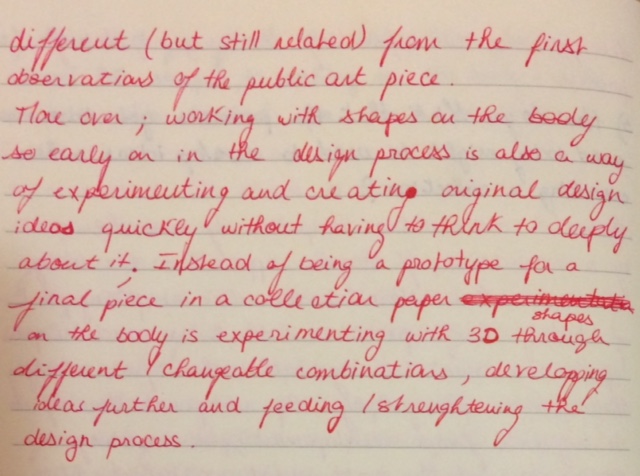 different (but still related) from the first
observations of the public art piece.
More over ; working with shapes on the body
so early on in the design process is also a way
of experimenting and creating original design
ideas quickly without having to think to deeply
about it. Instead of being a prototype for a
final piece in a collection paper
shapes
on the body is experimenting with 3D through
different / changeable combinations, developping
ideas further and feeding / strenghtening the
design process.